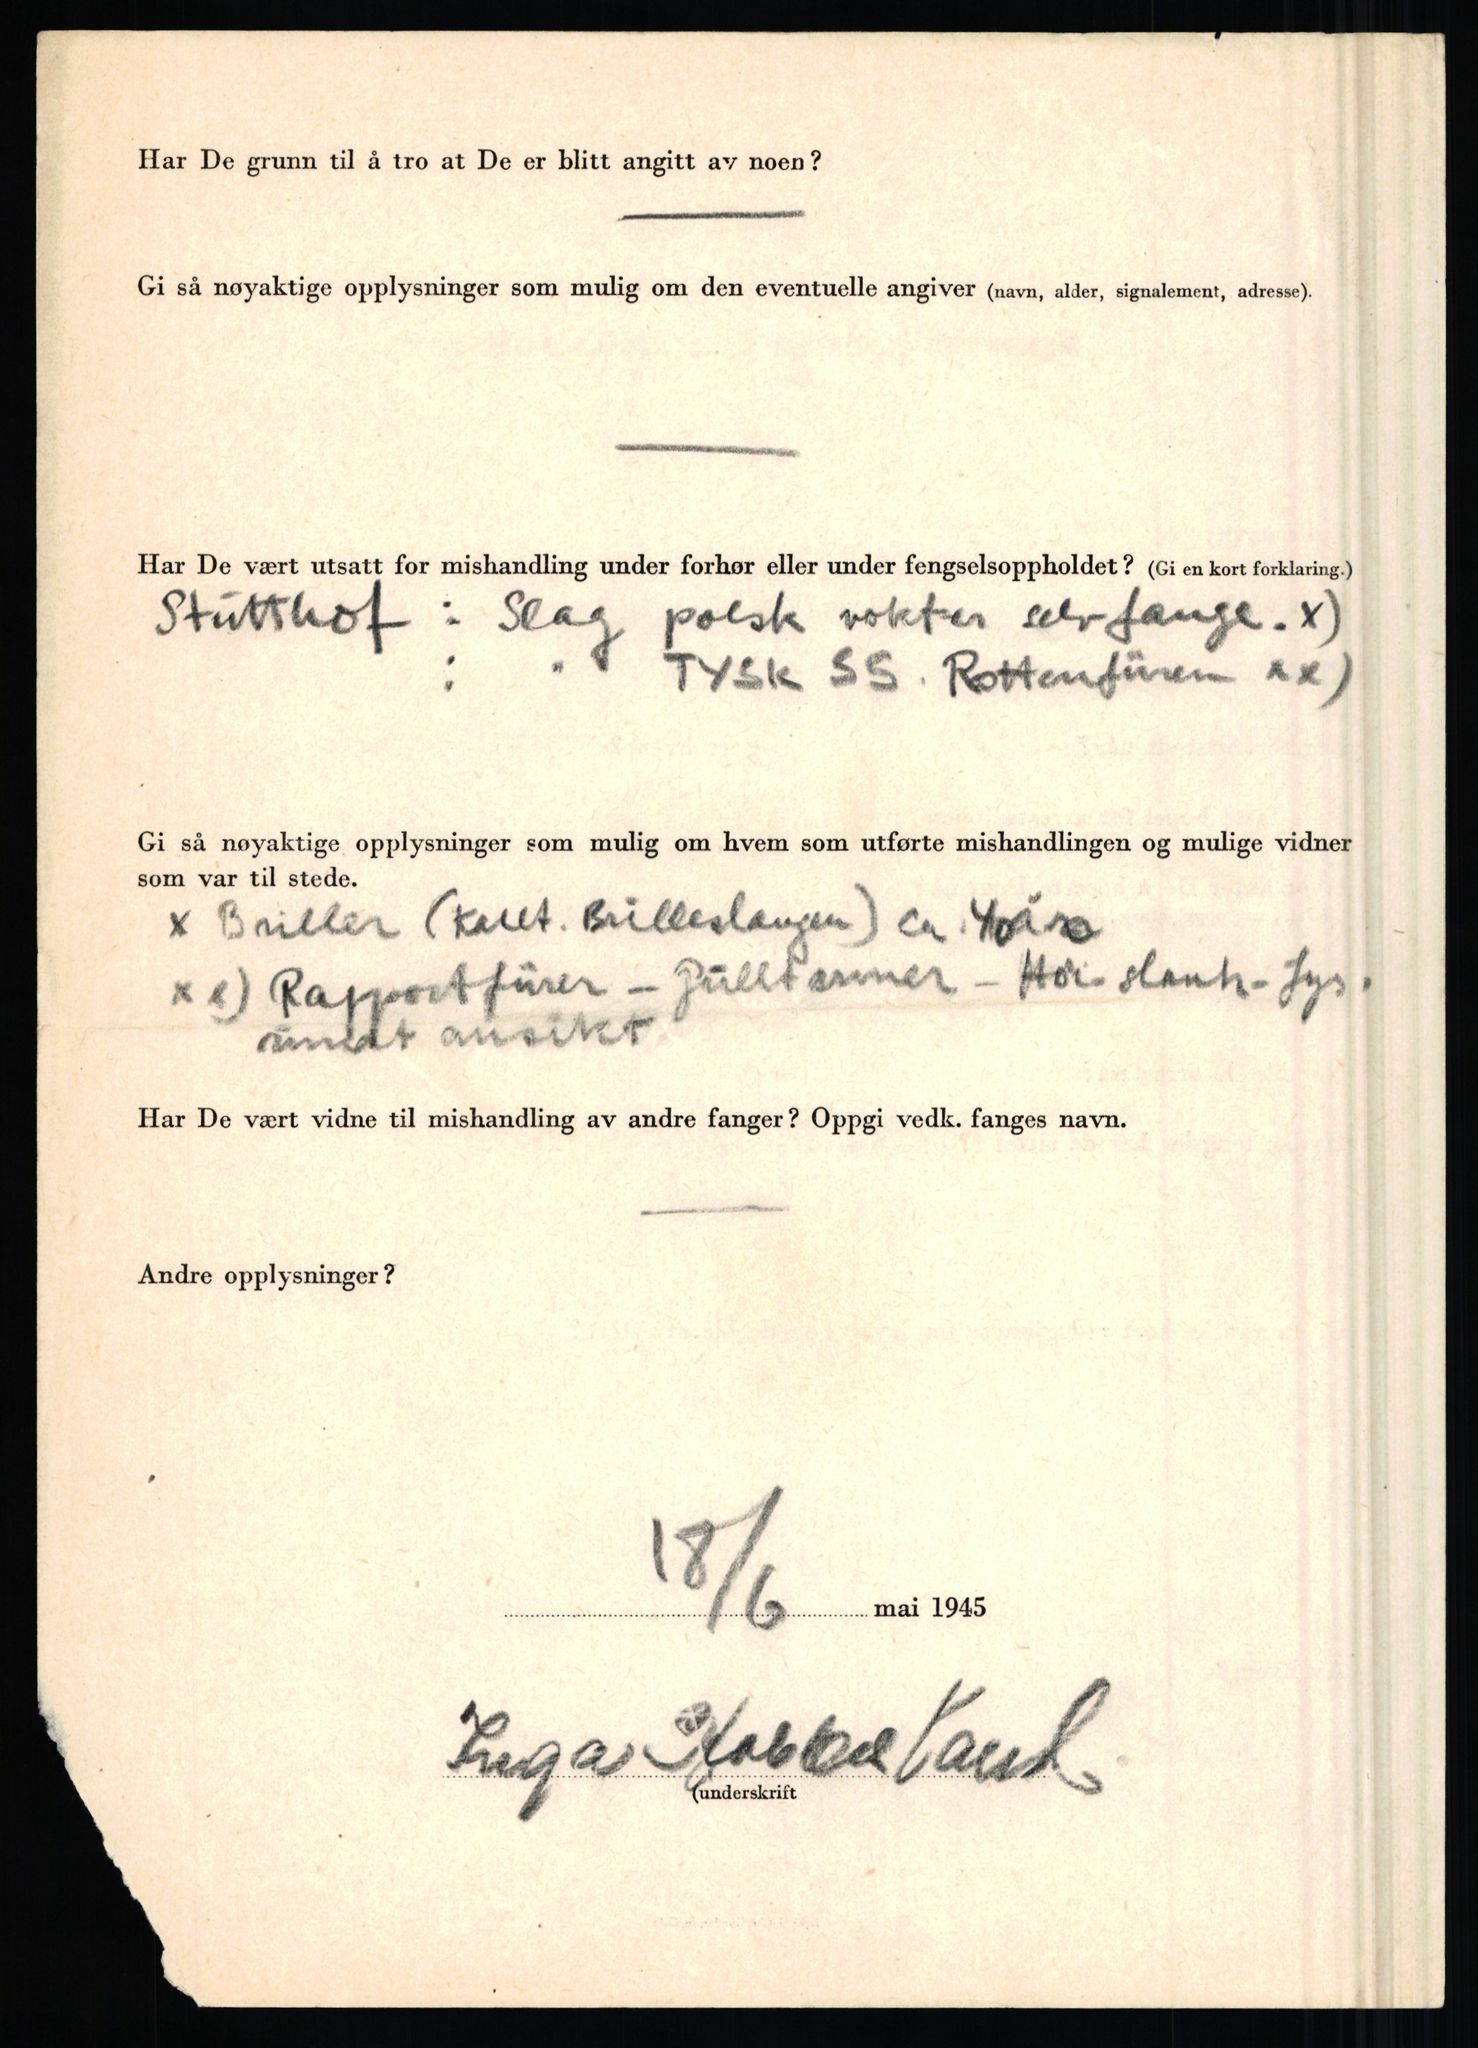 Har De grunn til å tro at De er blitt angitt av noen?
Gi så nøyaktige opplysninger som mulig om den eventuelle angiver (navn, alder, signalement, adresse).
Har De vært utsatt for mishandling under forhør eller under fengselsoppholdet? (Gi en kort forklaring.)
Stutthof : Slag polsk vokter selv fange. x)
: " TYSK SS. Rottenfürer xx)
Gi så nøyaktige opplysninger som mulig om hvem som utførte mishandlingen og mulige vidner
som var til stede.
x Briller (kallt. Brilleslangen) ca. 40 år
xx) Rappoertfürer - Gulltenner - Høi - slank - lys.
rundt ansikt.
Har De vært vidne til mishandling av andre fanger? Oppgi vedk. fanges navn.
Andre opplysninger?
18/6 mai 1945
Inga
(underskrift